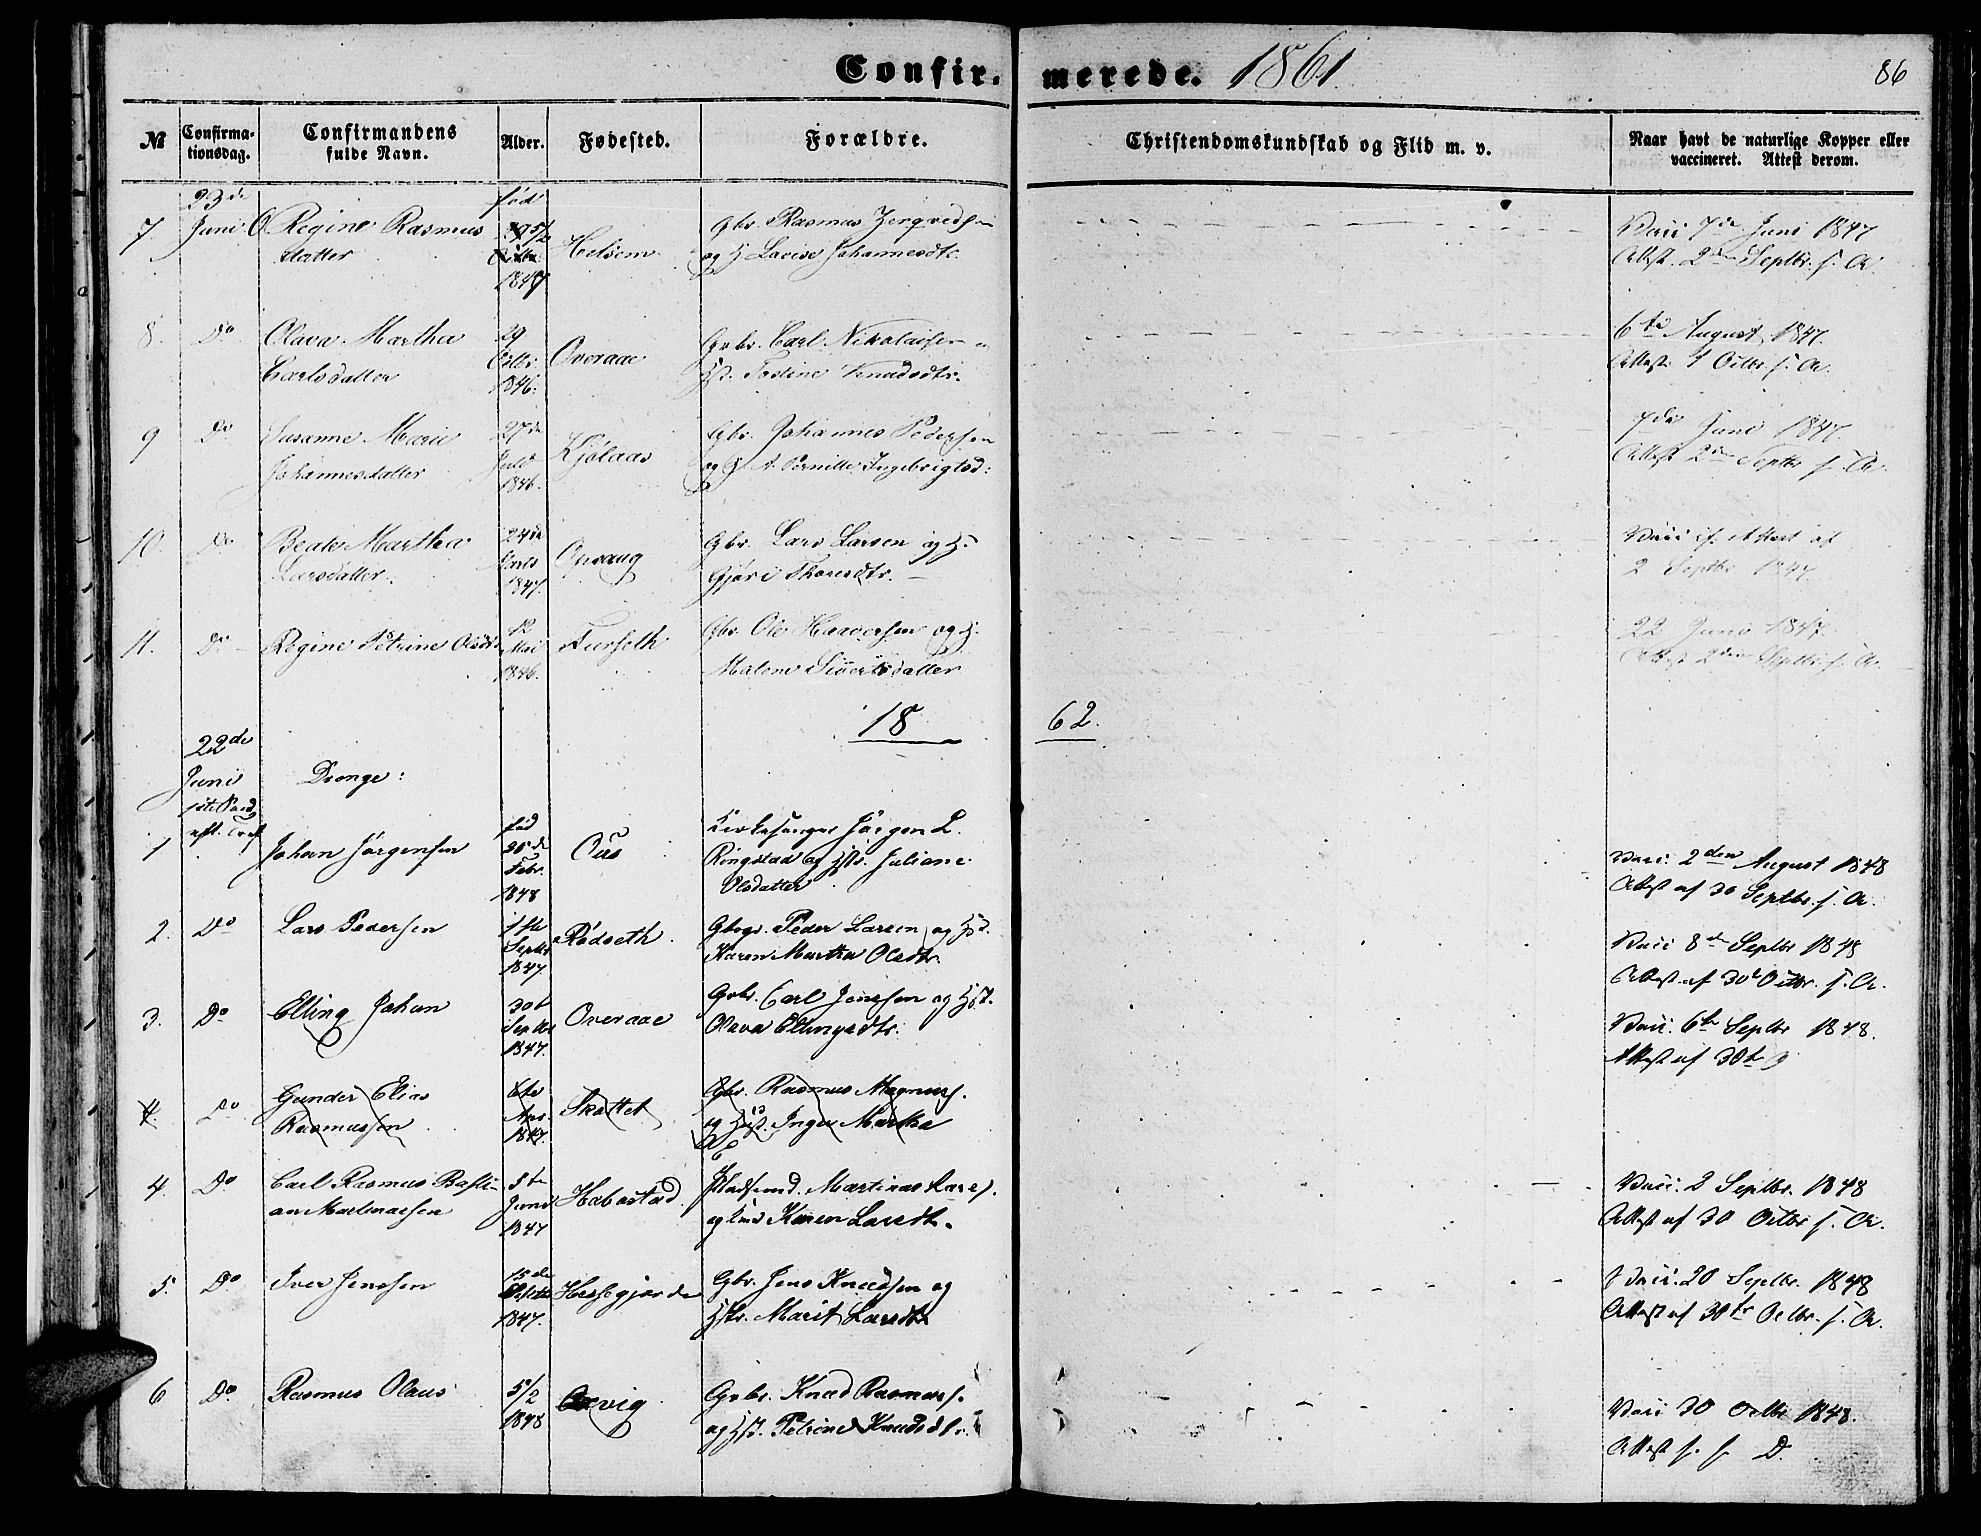 Confirmerede. 1861
86
№
Confirmationsdag.
Confirmandens fulde Navn.
Alder.
Fødested.
Forældre.
Christendomskundskab og Flid m. v.
Naar havt de naturlige Kopper eller vaccineret. Attest derom.
7. 23de Juni Regine Rasmusdatter
Gbr. Rasmus
og H Lovise Johannesdtr.
Vacc 7de Juni 1847
Attest. 2den Septbr. s. A.
8. Do Olava Martha Carlsdatter
29 Octbr. 1846.
Overaae
Gvbr. Carl Nikolaisen
Hst. Knudsdtr.
6te August 1847.
Attest 1 Octbr. s. A.
9 Do Susanne Marie Johannesdatter
27de Juli 1846.
Kjølaas
Gbr. Johannes Pedersen
og H A. Pernille Ingebrigtsd:
7de Juni 1847.
Attest 2den Septbr s. A.
10. Do Beate Martha Larsdatter.
24de 1847.
Opvaug
Gbr. Lars Larsen og H.
Gjøri Tharesdtr.
Vacc if. Attest af
2 Septbr 1847.
11. Do Regine Petrine Olsdt.
12 Mai 1846.
Furseth
Gbr. Ole Halversen og H.
Malene Siversdatter
22 Juni 1847.
Attest 2den Septbr. s. A.
18 62.
22de Juni
Drenge:
1 Johan Jørgensen
fød Febr. 1848
Ous
Kirkesanger Jørgen L.
Ringstad og Hstr. Juliane
Olsdatter
Vacc. 2den August 1848
Attest af 30 Septbr. s. A.
2. Do Lars Pedersen
1ste Septbr 1847.
Rødseth
Gbrgr. Peder Larsen og Hst.
Karen Martha Olsdtr.
Vacc 8de Septbr 1848
Attest af 30te Octbr. s. A.
3. Do Elling Johan
30te Septbr 1847.
Overaae
Gvbr. Carl Jenssen og Hst.
Olava Ellingsdtr.
Vacc. 6te Septbr 1848.
Attest af 30te
4. Do Gunder Elias Rasmussen
6te 1847.
Skottet
Gbr. Rasmus Magnuss.
og Hst. Inger Martha
4. Do Carl Rasmus Bastian Martinussen
5te Juni 1847
Habostad
Pladsmd. Martinus Lars.
og Karen Larsdtr.
Vacc. 2 Septbr. 1848
Attest af 30 Octbr s. A.
5. Do Iver Jenssen
15de 1847.
Hassegjerde
Gbr. Jens Knudsen og
Hstr. Marit Larsdtr
Vacc. 20 Septbr. 1848
Attest af 30te Octbr. s. A.
6 Do Rasmus Olaus
5/2 1848
Gvbr. Knud Rasmuss.
og Hst. Petrine Knudsdtr.
Vacc 30 Octbr 1848.
Attest s. s D.